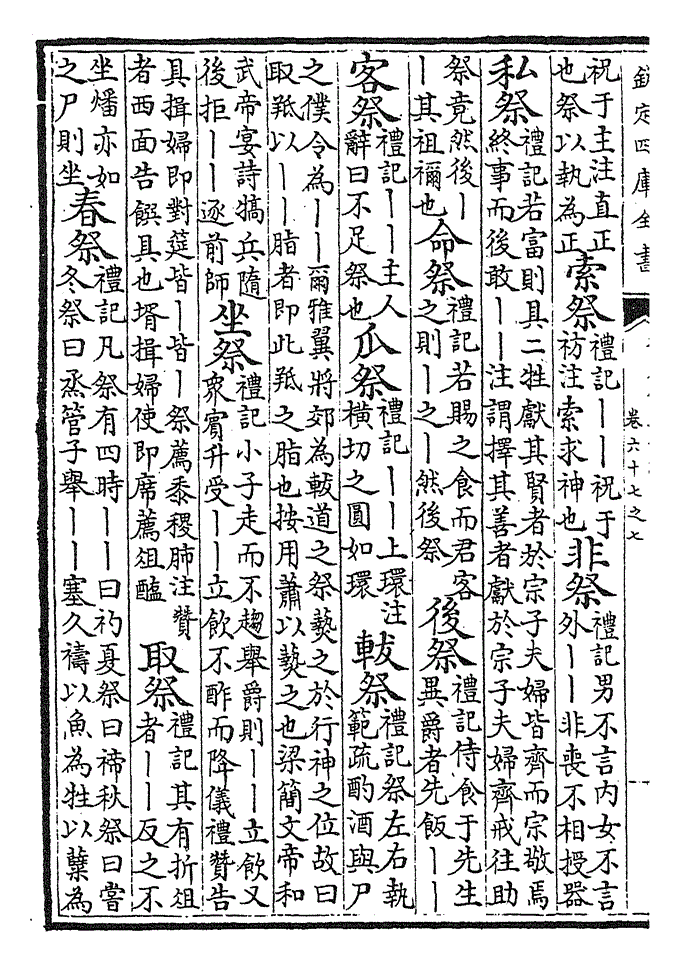 欽定四庫全書
卷六十七之七
祝于主注直正
也祭以執為正
索祭
禮記丨丨祝于
祊注索求神也
非祭
禮記男不言内女不言
外丨丨非喪不相授器
私祭
禮記若富則具二牲獻其賢者於宗子夫婦皆齊而宗敬焉
終事而後敢丨丨注謂擇其善者獻於宗子夫婦齊戒往助
祭竟然後丨
丨其祖禰也
命祭
禮記若賜之食而君客
之則丨之丨然後祭
後祭
禮記侍食于先生
異爵者先飯丨丨
客祭
禮記丨丨主人
辭曰不足祭也
瓜祭
禮記丨丨上環注
橫切之圓如環
軷祭
禮記祭左右執
範疏酌酒與尸
之僕令為丨丨爾雅翼將郊為軷道之祭爇之於行神之位故曰
取羝以丨丨脂者即此羝之脂也按用蕭以爇之也梁簡文帝和
武帝宴詩犒兵隨
後拒丨丨逐前師
坐祭
禮記小子走而不趨舉爵則丨丨立飲又
衆賓升受丨丨立飲不酢而降儀禮贊告
具揖婦即對筵皆丨皆丨祭薦黍稷肺注贊
者西面告饌具也壻揖婦使即席薦俎醢
取祭
禮記其有折俎
者丨丨反之不
坐燔亦如
之尸則坐
春祭
禮記凡祭有四時丨丨曰礿夏祭曰禘秋祭曰嘗
冬祭曰烝管子舉丨丨塞久禱以魚為牲以蘖為